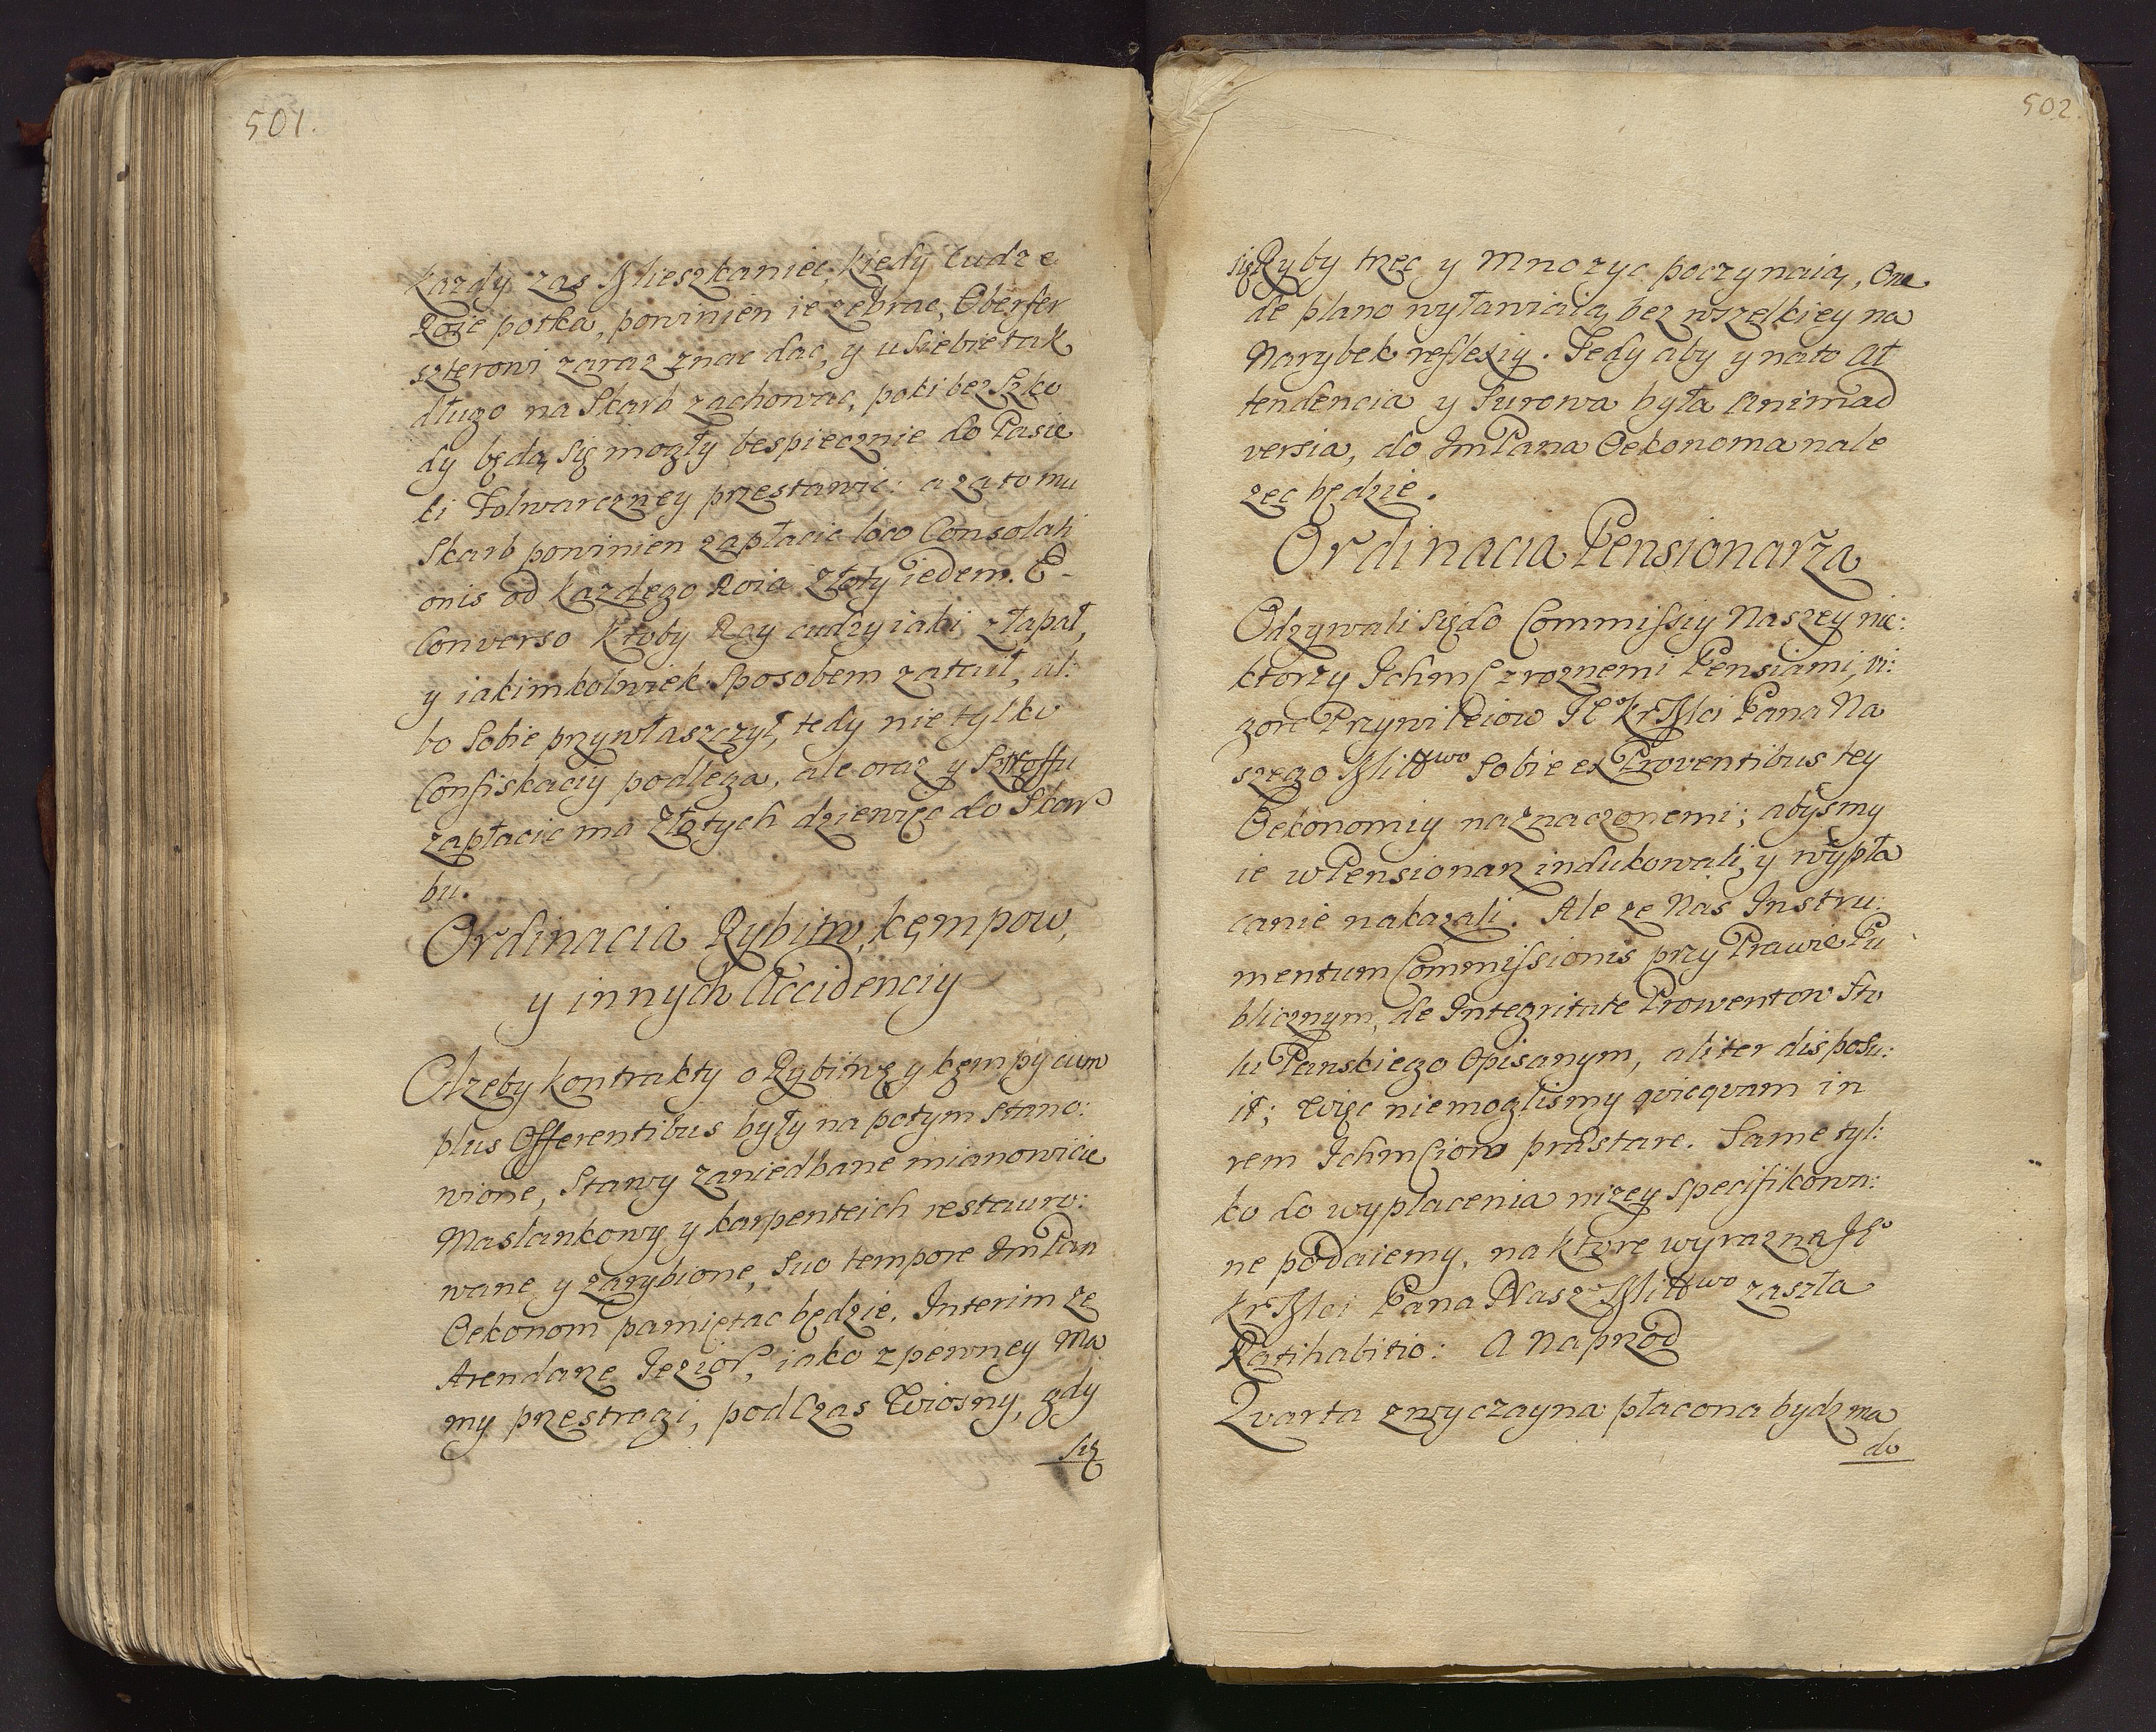 501.
Kazdy zas Mieszkaniec, kiedy cudze
Roie potka, powinien ie zebrac, Oberfer
szterowi zaraz znac dac, y u siebie tak
długo na Skarb zachowac, poki bez Szko
dy będą się mogły bespiecznie do Pasie
ki Folwarczney przestawic: a za to mu
Skarb powinien zapłacic loco Consolati
onis od kazdego Roia Złoty ieden. E-
Converso ktoby Roy cudzy iaki złapał,
y iakimkolwiek Sposobem zataił, al:
bo Sobie przywłaszczył, tedy nie tylko
Confiskaciy podlega, ale oraz y Sztroffu
zapłacic ma Złotych dziewięc do Skar
bu.
Ordinacia Rybitw, kęmpow,
y innych Accidenciy
Azeby kontrakty o Rybitwę y kęmpy cum
plus Offerentibus były na potym stano:
wione, Stawy zaniedbane mianowicie
Maslankowy y karpenteich restauro:
wane y zarybione, Suo tempore Im Pan
Oekonom pamiętac będzie. Interim ze
Arendarze Iezior, iako z pewney ma
my przestrogi, podczas Wiosny, gdy
się
502.
się Ryby trzec y mnozyc poczynaią, One
de plano wyławiaią, bez wszelkiey na
Narybek reflexiy. Tedy aby y na to at
tendencia y Surowa była animad
versia, do Im Pana Oekonoma nale
zec będzie.
Ordinacia Pensionarza
Odzywali się do Commissiy Naszey nie:
ktorzy Ichmc z roznemi Pensiami, vi:
gore Przywileiow IKo Kr Mci Pana Na
szego Miłłwo Sobie ex Proventibus tey
Oekonomiy naznaczonemi; abysmy
ie w Pensionarz indukowali, y wypła
canie nakazali. Ale ze Nas Instru:
mentum Commissionis przy Prawie Pu
blicznym, de Integritate Prowentow Sto
łu Panskiego Opisanym, aliter disposu:
it; Więc nie moglismy quicquam in
rem Ichmciow præstare. Same tyl:
ko do wypłacenia nizey specifikowa:
ne podaiemy, na ktore wyrazna Io
Kr Mci Pana Nasz Miłłwo zaszła
Ratihabitio: A naprzod
Qvarta zwyczayna płacona bydz ma
do